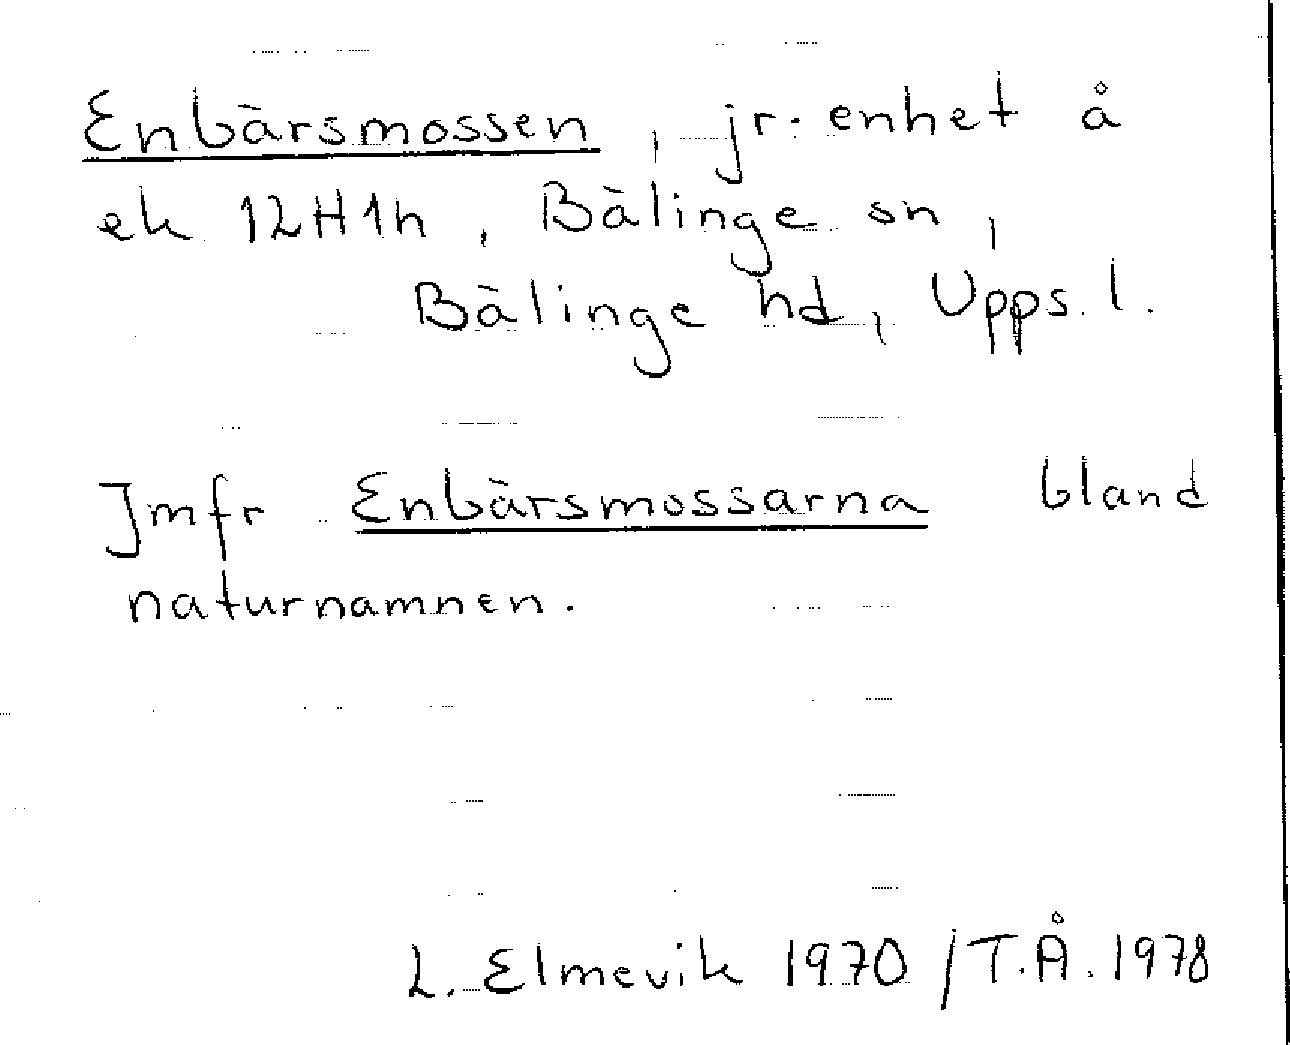 Enbärsmossen, jr.enhet å
ek 12H1h, Bälinge sn,
Bälinge hd, Upps. l.
Jmfr Enbärsmossarna bland
naturnamnen.
L. Elmevik 1970 / T.Å. 1978